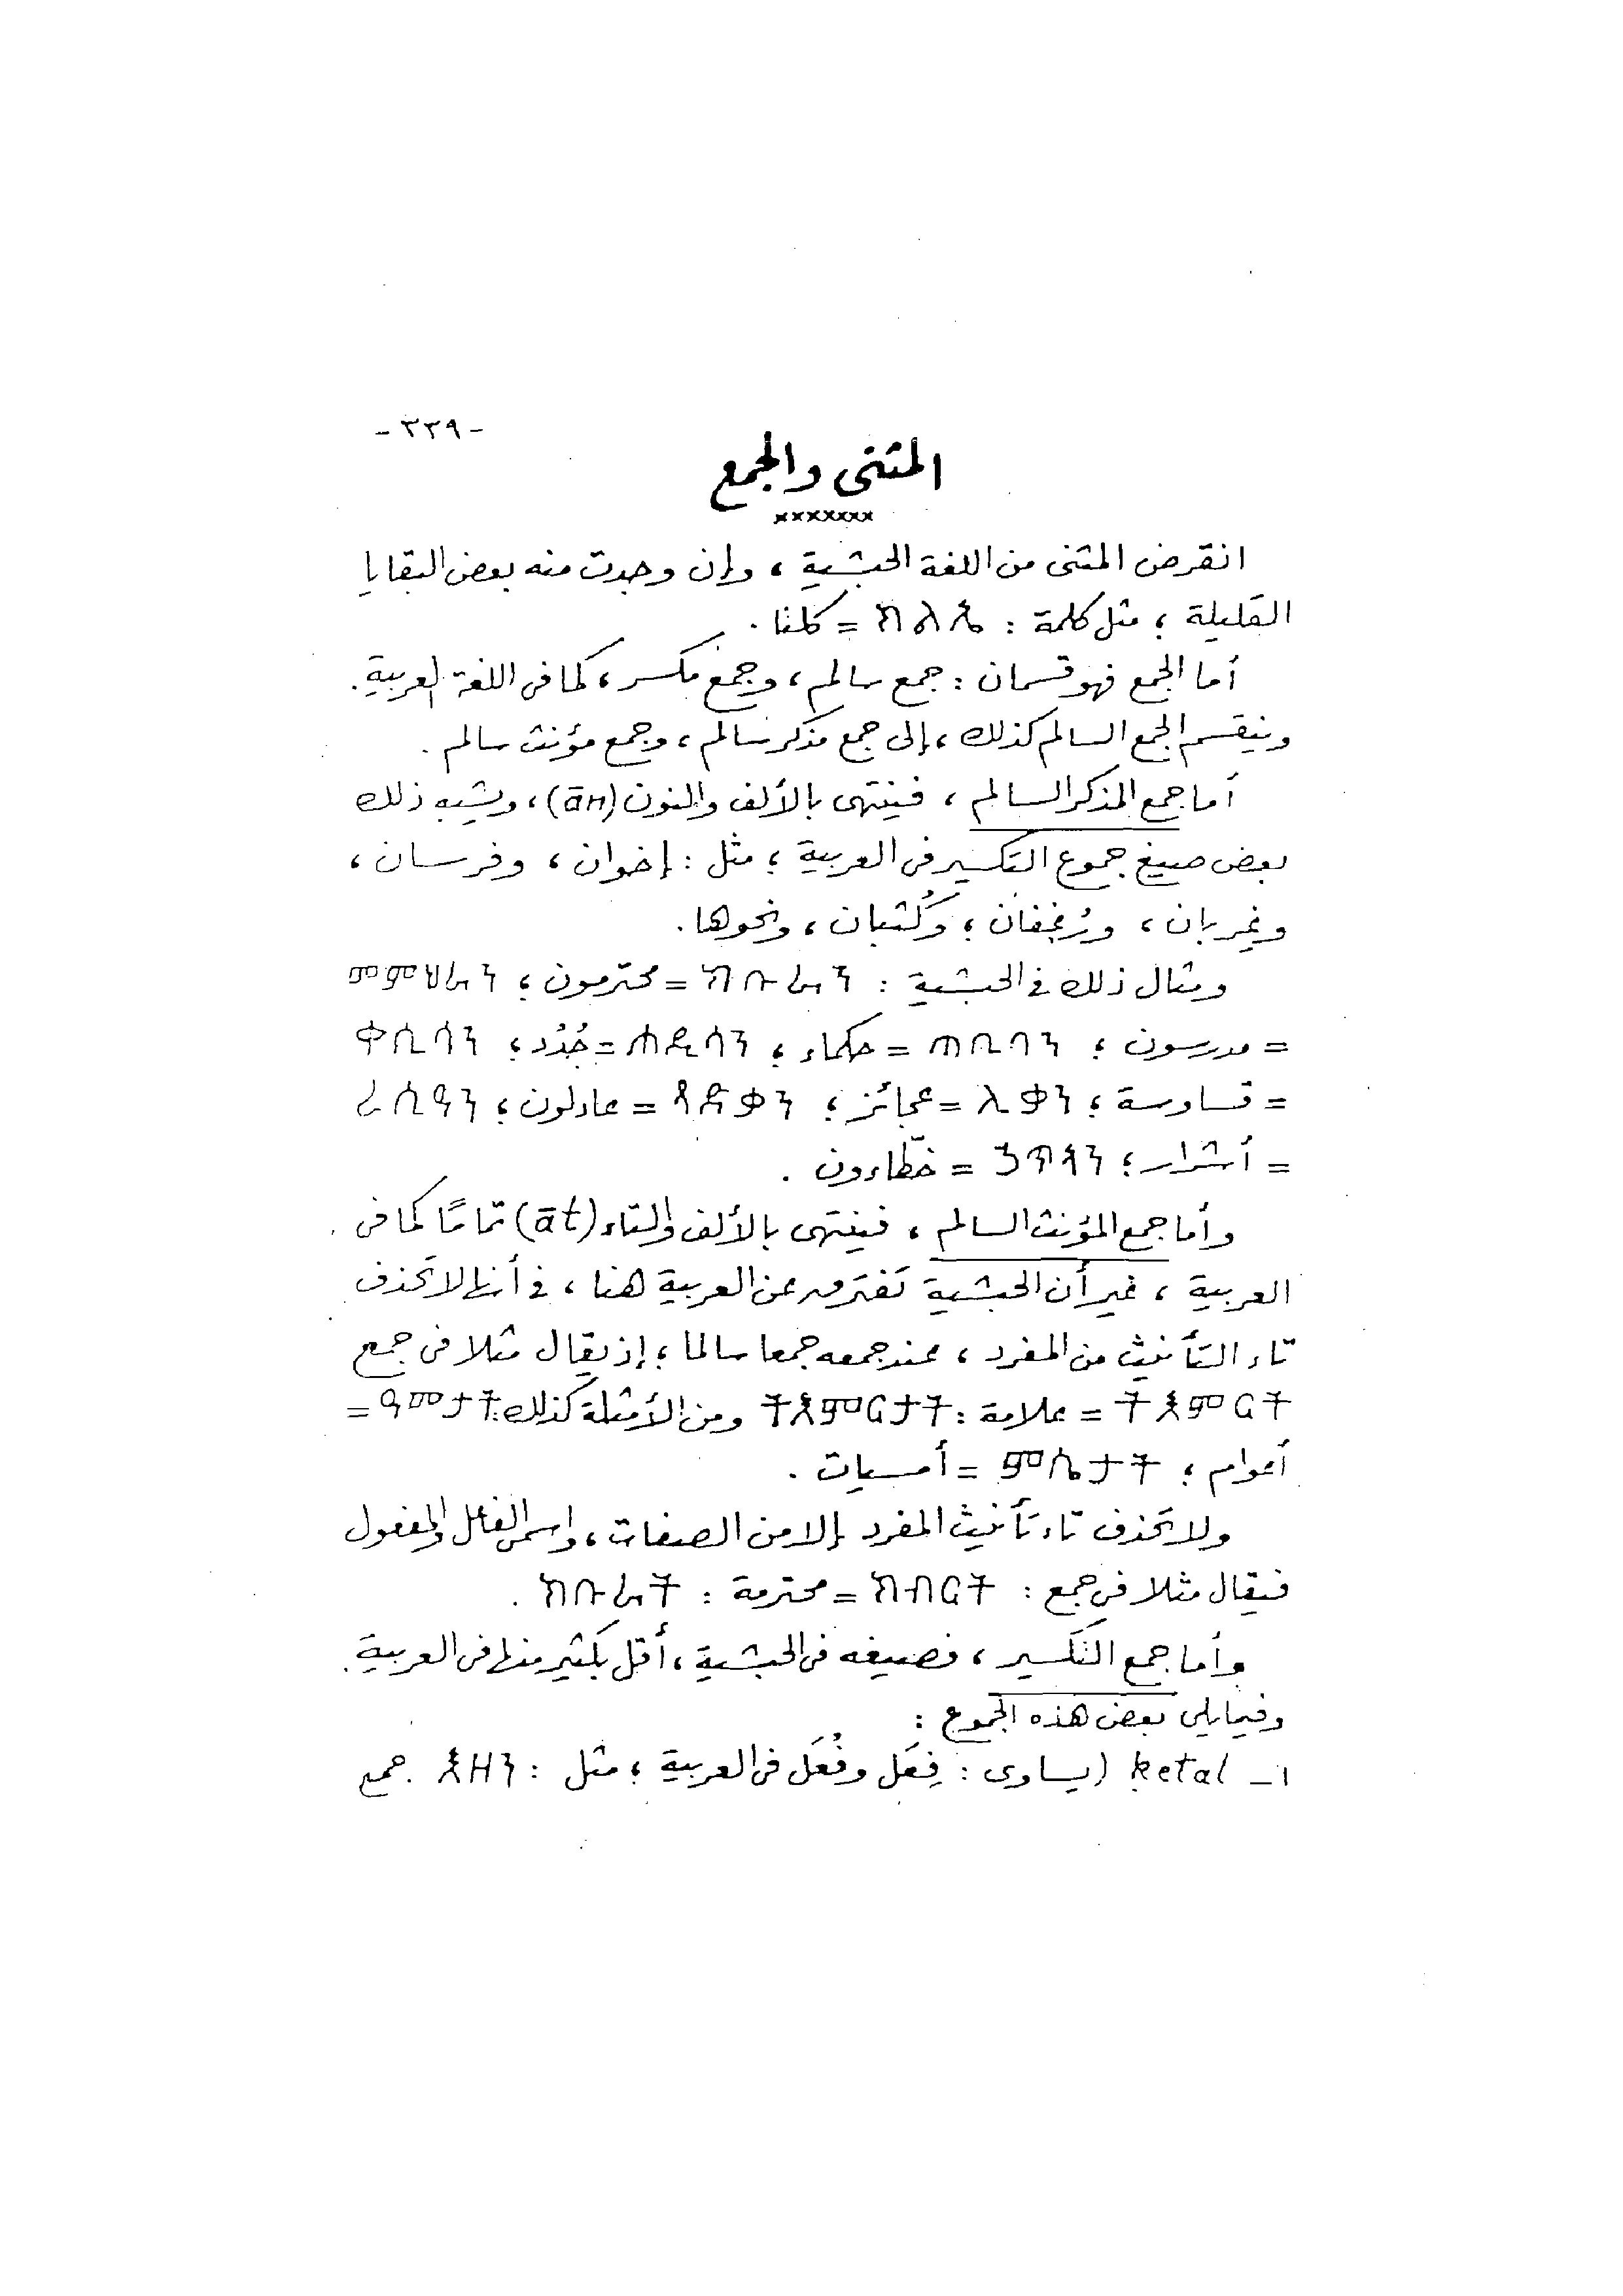 - ٣٣٩ -
المثنى والجمع
×××××××
انقرض المثنى من اللغة الحبشية ، وإن وجدت منه بعض البقايا
القليلة ؛ مثل كلمة : ክልኤ = كلتا .
أما الجمع فهو قسمان : جمع سالم ، وجمع مكسر ، كما فى اللغة العربية .
وينقسم الجمع السالم كذلك ، إلى جمع مذكر سالم ، وجمع مؤنث سالم .
أما جمع المذكر السالم ، فينتهى بالألف والنون (ān) ، ويشبه ذلك
بعض صيغ جموع التكسير فى العربية ؛ مثل : إخوان ، وفرسان ،
وغِربان ، ورُغفان ؛ وكُثبان ، ونحوها .
ومثال ذلك فى الحبشية : ክቡራን = محترمون ؛ መምህራን
= مدرسون ؛ ጠቢባን = حكماء ؛ ሐዲሳን = جُدُد ؛ ቀሲሳን
= قساوسة ؛ ልቃን = عجائز ؛ ጻድቃን = عادلون ؛ ረሲዓን
= أشرار ؛ ኃጥኣን = خطّاءون .
وأما جمع المؤنث السالم ، فينتهى بالألف والتاء (āt) تمامًا كما فى
العربية ، غير أن الحبشية تفترق عن العربية هنا ، فى أنها لا تحذف
تاء التأنيث من المفرد ، عند جمعه جمعا سالما ؛ إذ يقال مثلا فى جمع
ትእምርት = علامة : ትእምርታት ومن الأمثلة كذلك : ዓመታት =
أعوام ؛ ምሴታት = أمسيات .
ولا تحذف تاء تأنيث المفرد إلا من الصفات ، واسمى الفاعل والمفعول
فيقال مثلا فى جمع : ክብርት = محترمة : ክቡራት .
وأما جمع التكسير ، فصيغه فى الحبشية ، أقل بكثير منها فى العربية .
وفيما يلى بعض هذه الجموع :
١ - ketal (يساوى : فِعَل وفُعَل فى العربية ؛ مثل : እዘን جمع